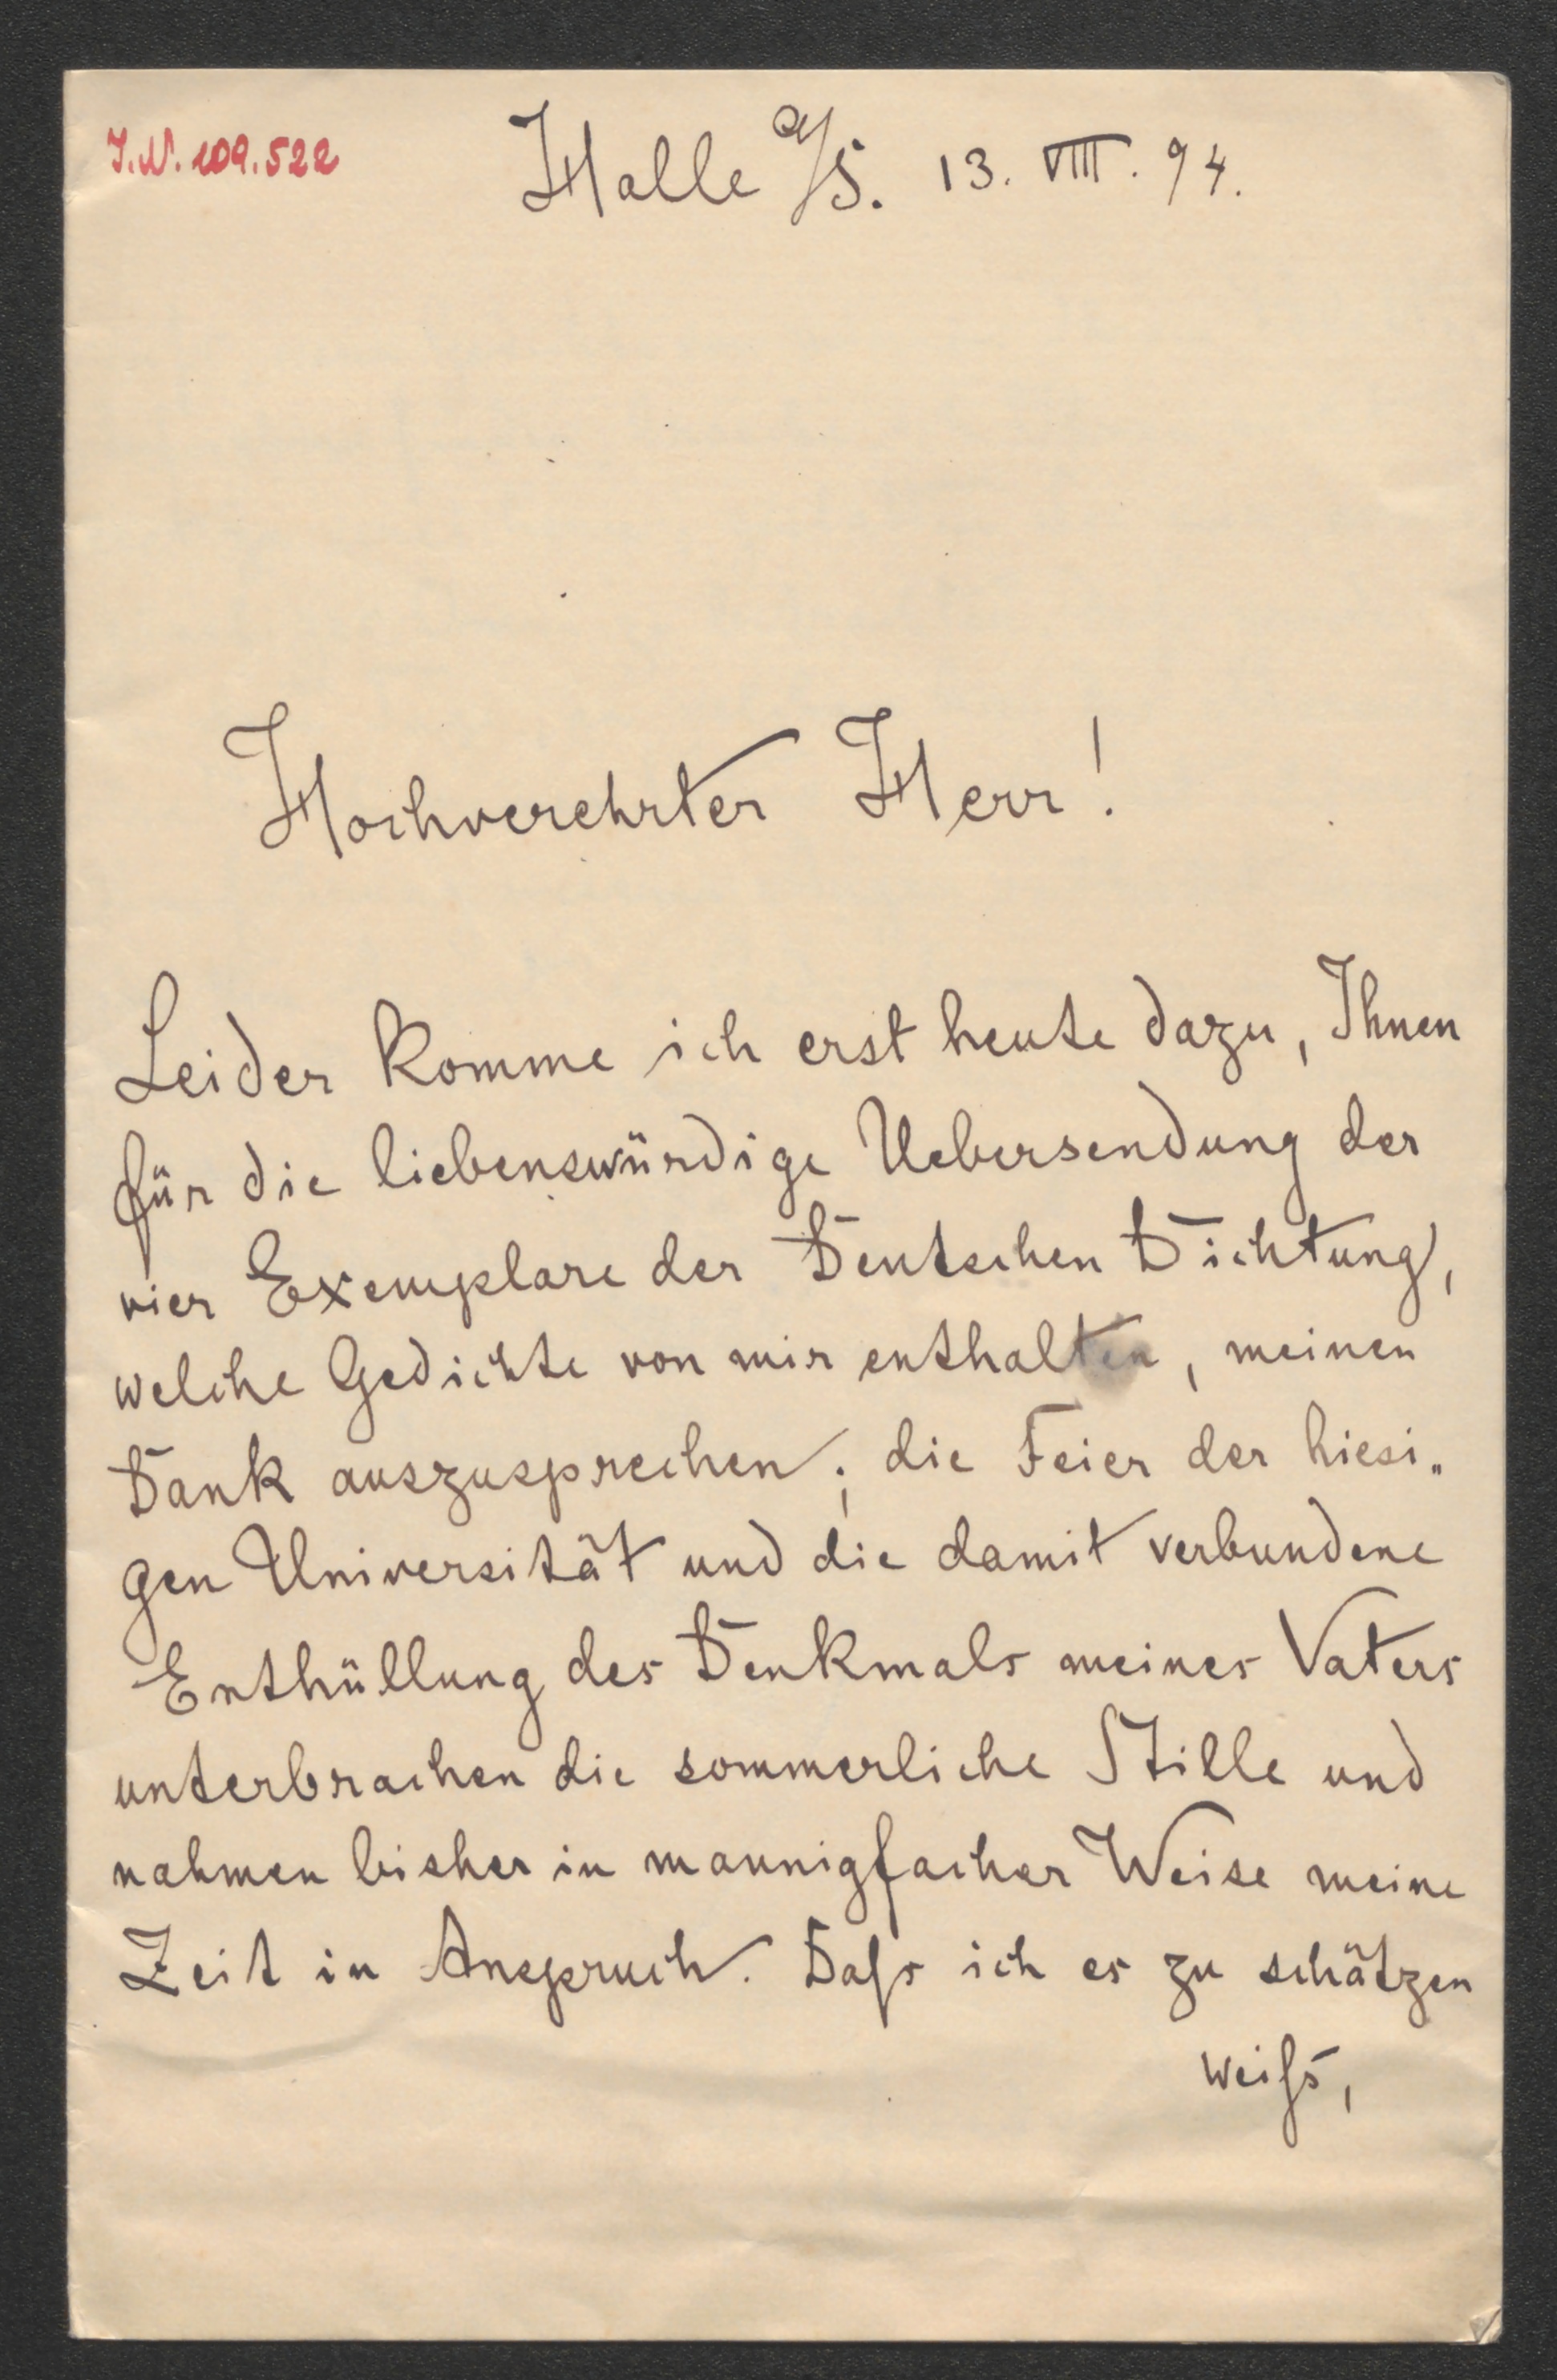 J.N. 109.522
Halle a/S. 13. VIII. 94.
Hochverehrter Herr!
Leider komme ich erst heute dazu, Ihnen
für die liebenswürdige Uebersendung der
vier Exemplare der Deutschen Dichtung,
welche Gedichte von mir enthalten, meinen
Dank auszusprechen; die Feier der hiesi„
gen Universität und die damit verbundene
Enthüllung des Denkmals meines Vaters
unterbrachen die sommerliche Stille und
nahmen bisher in mannigfacher Weise meine
Zeit in Anspruch. Daſs ich es zu schätzen
weiſs,